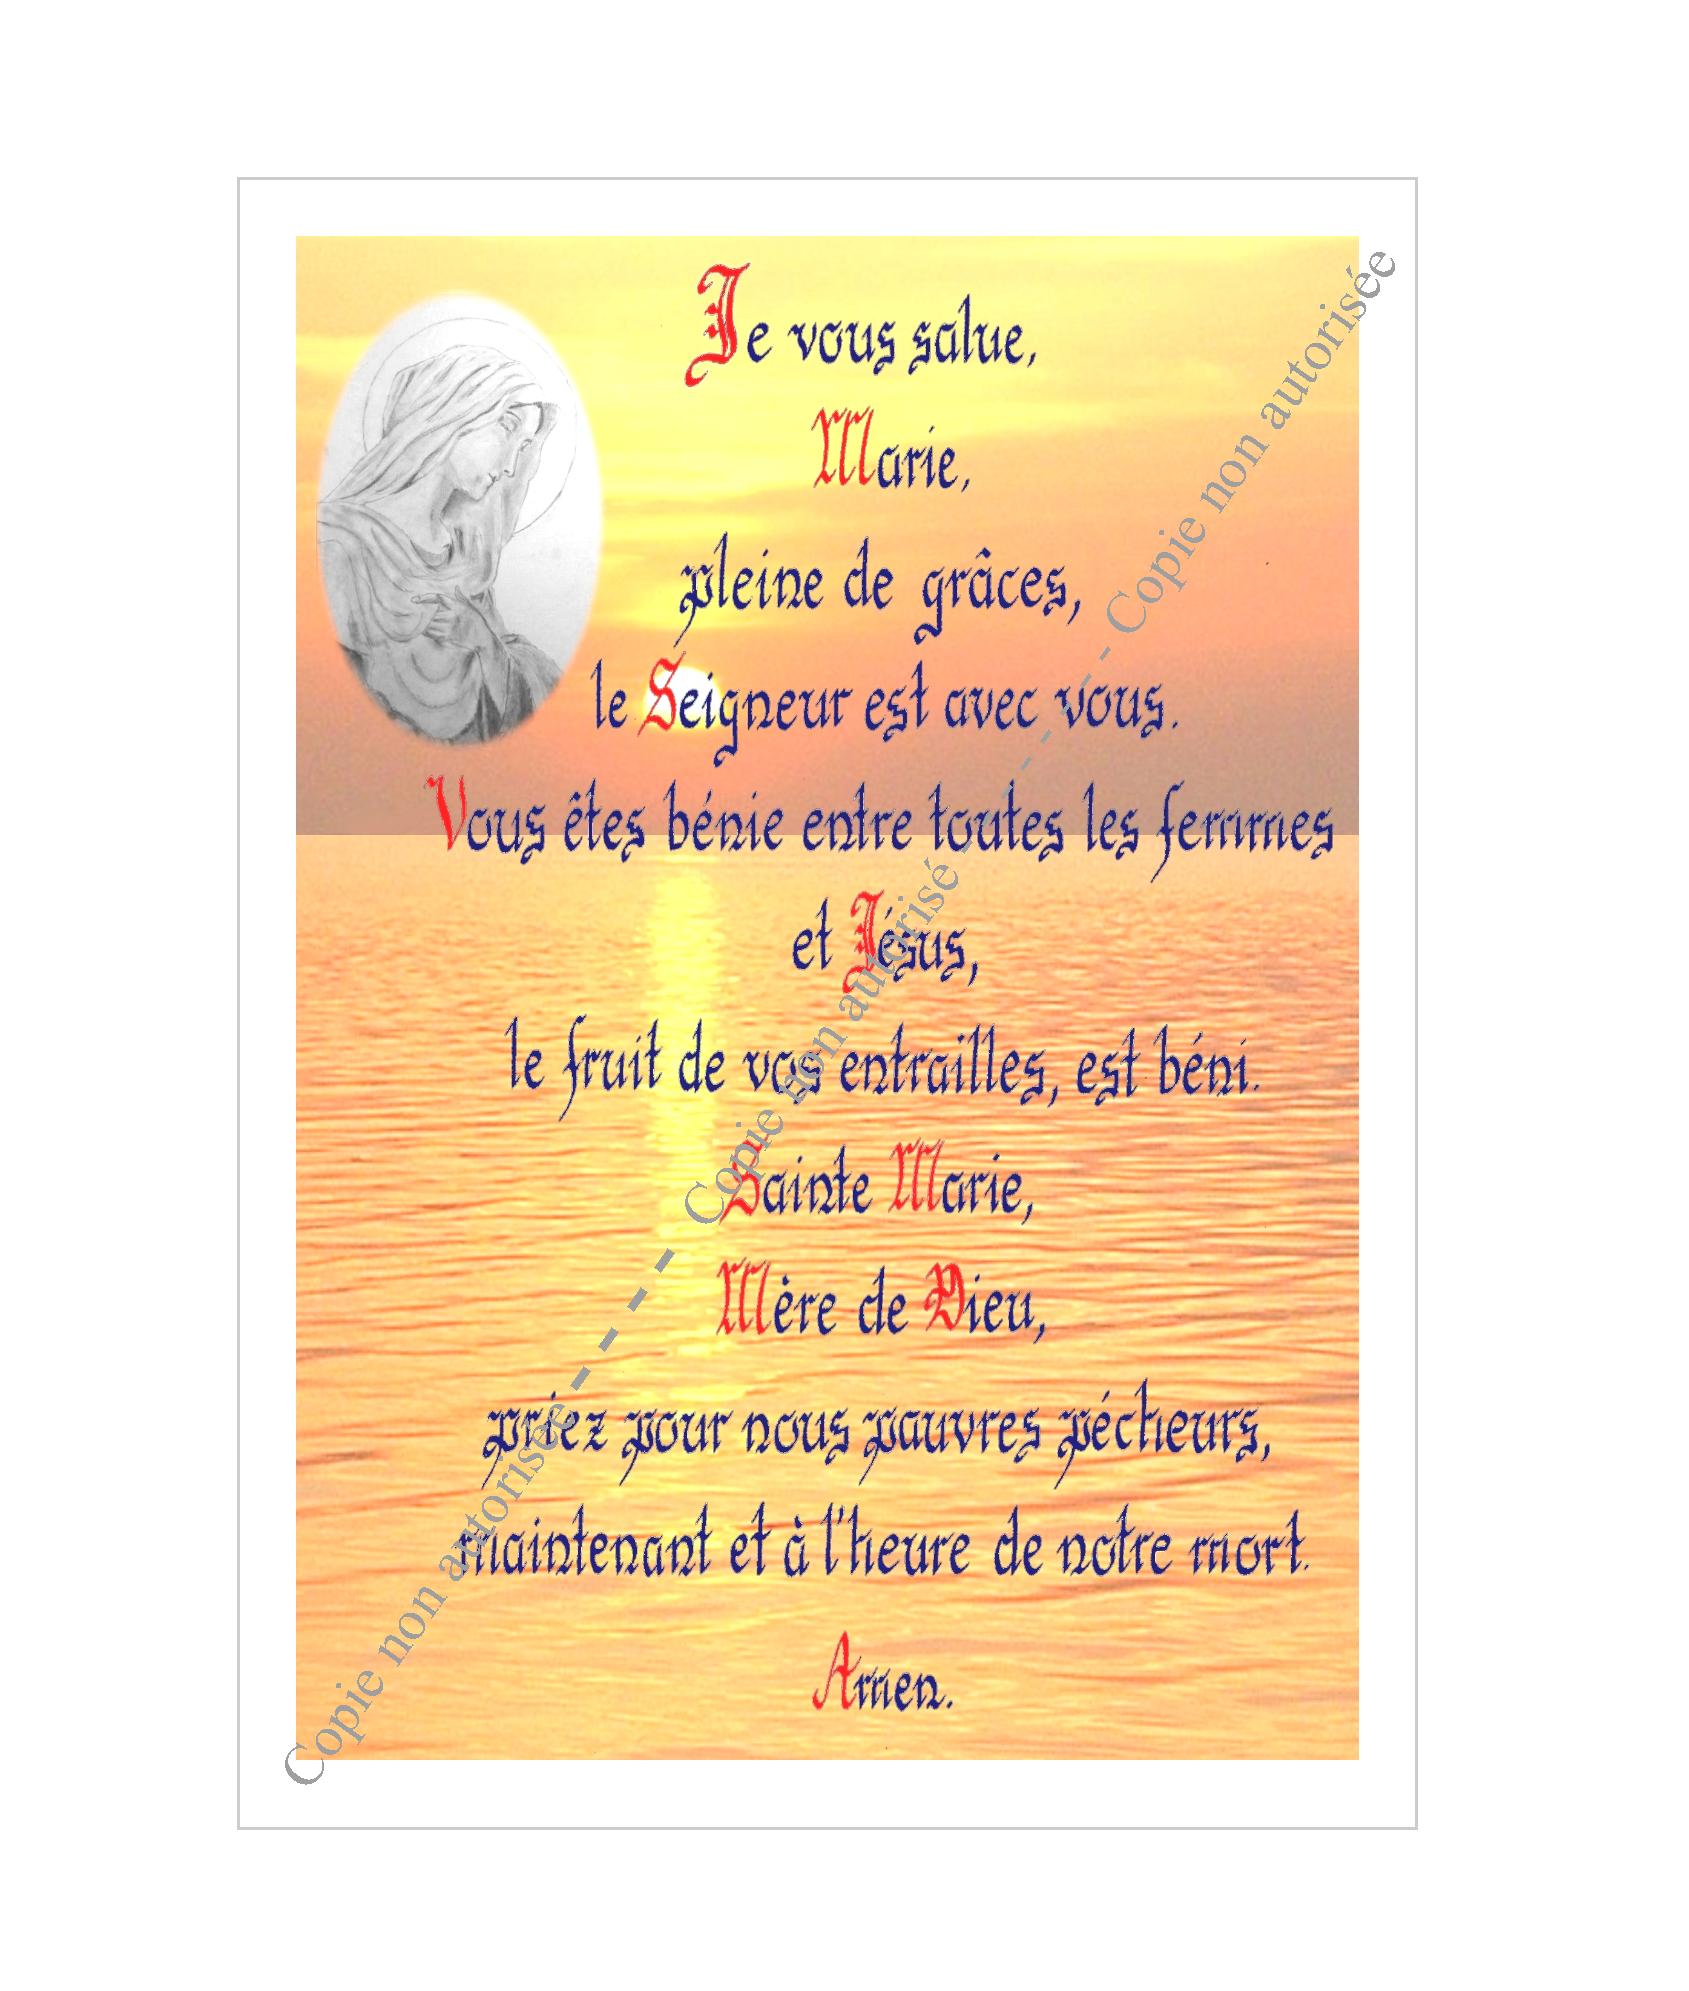 Je vous salue,
Marie,
pleine de grâces,
le Seigneur est avec vous.
Vous êtes bénie entre toutes les femmes
et Jésus,
le fruit de vos entrailles, est béni.
Sainte Marie,
Mère de Dieu,
priez pour nous pauvres pécheurs,
maintenant et à l'heure de notre mort.
Amen.
Copie non autorisée - - - - - Copie non autorisé - - - - Copie non autorisée